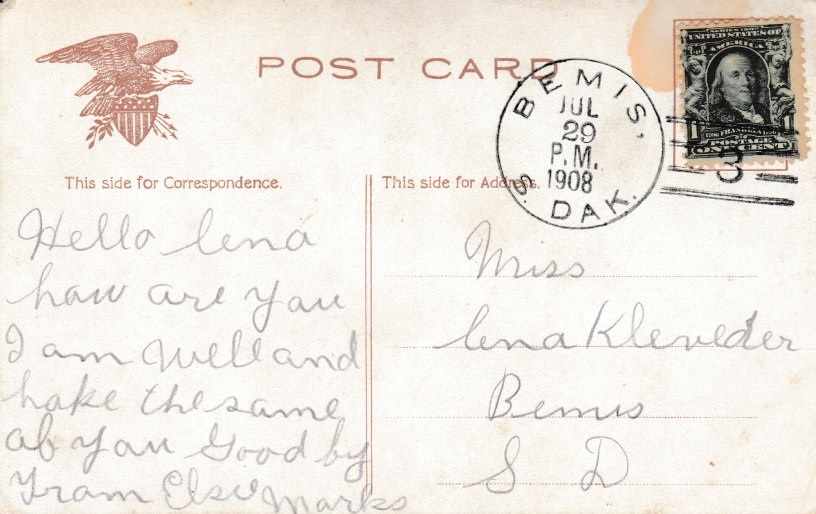 POST CARD
BEMIS,
JUL
29
P.M.
1908
S. DAK.
3
SERIES 1902
UNITED STATES OF
AMERICA
1
FRANKLIN
POSTAGE
ONE CENT
This side for Correspondence.
Hello lena
how are you
I am well and
hoke the same
ob you Good by
From Elsie Marks
This side for Address.
Miss
lena Kleveder
Bemis
S D